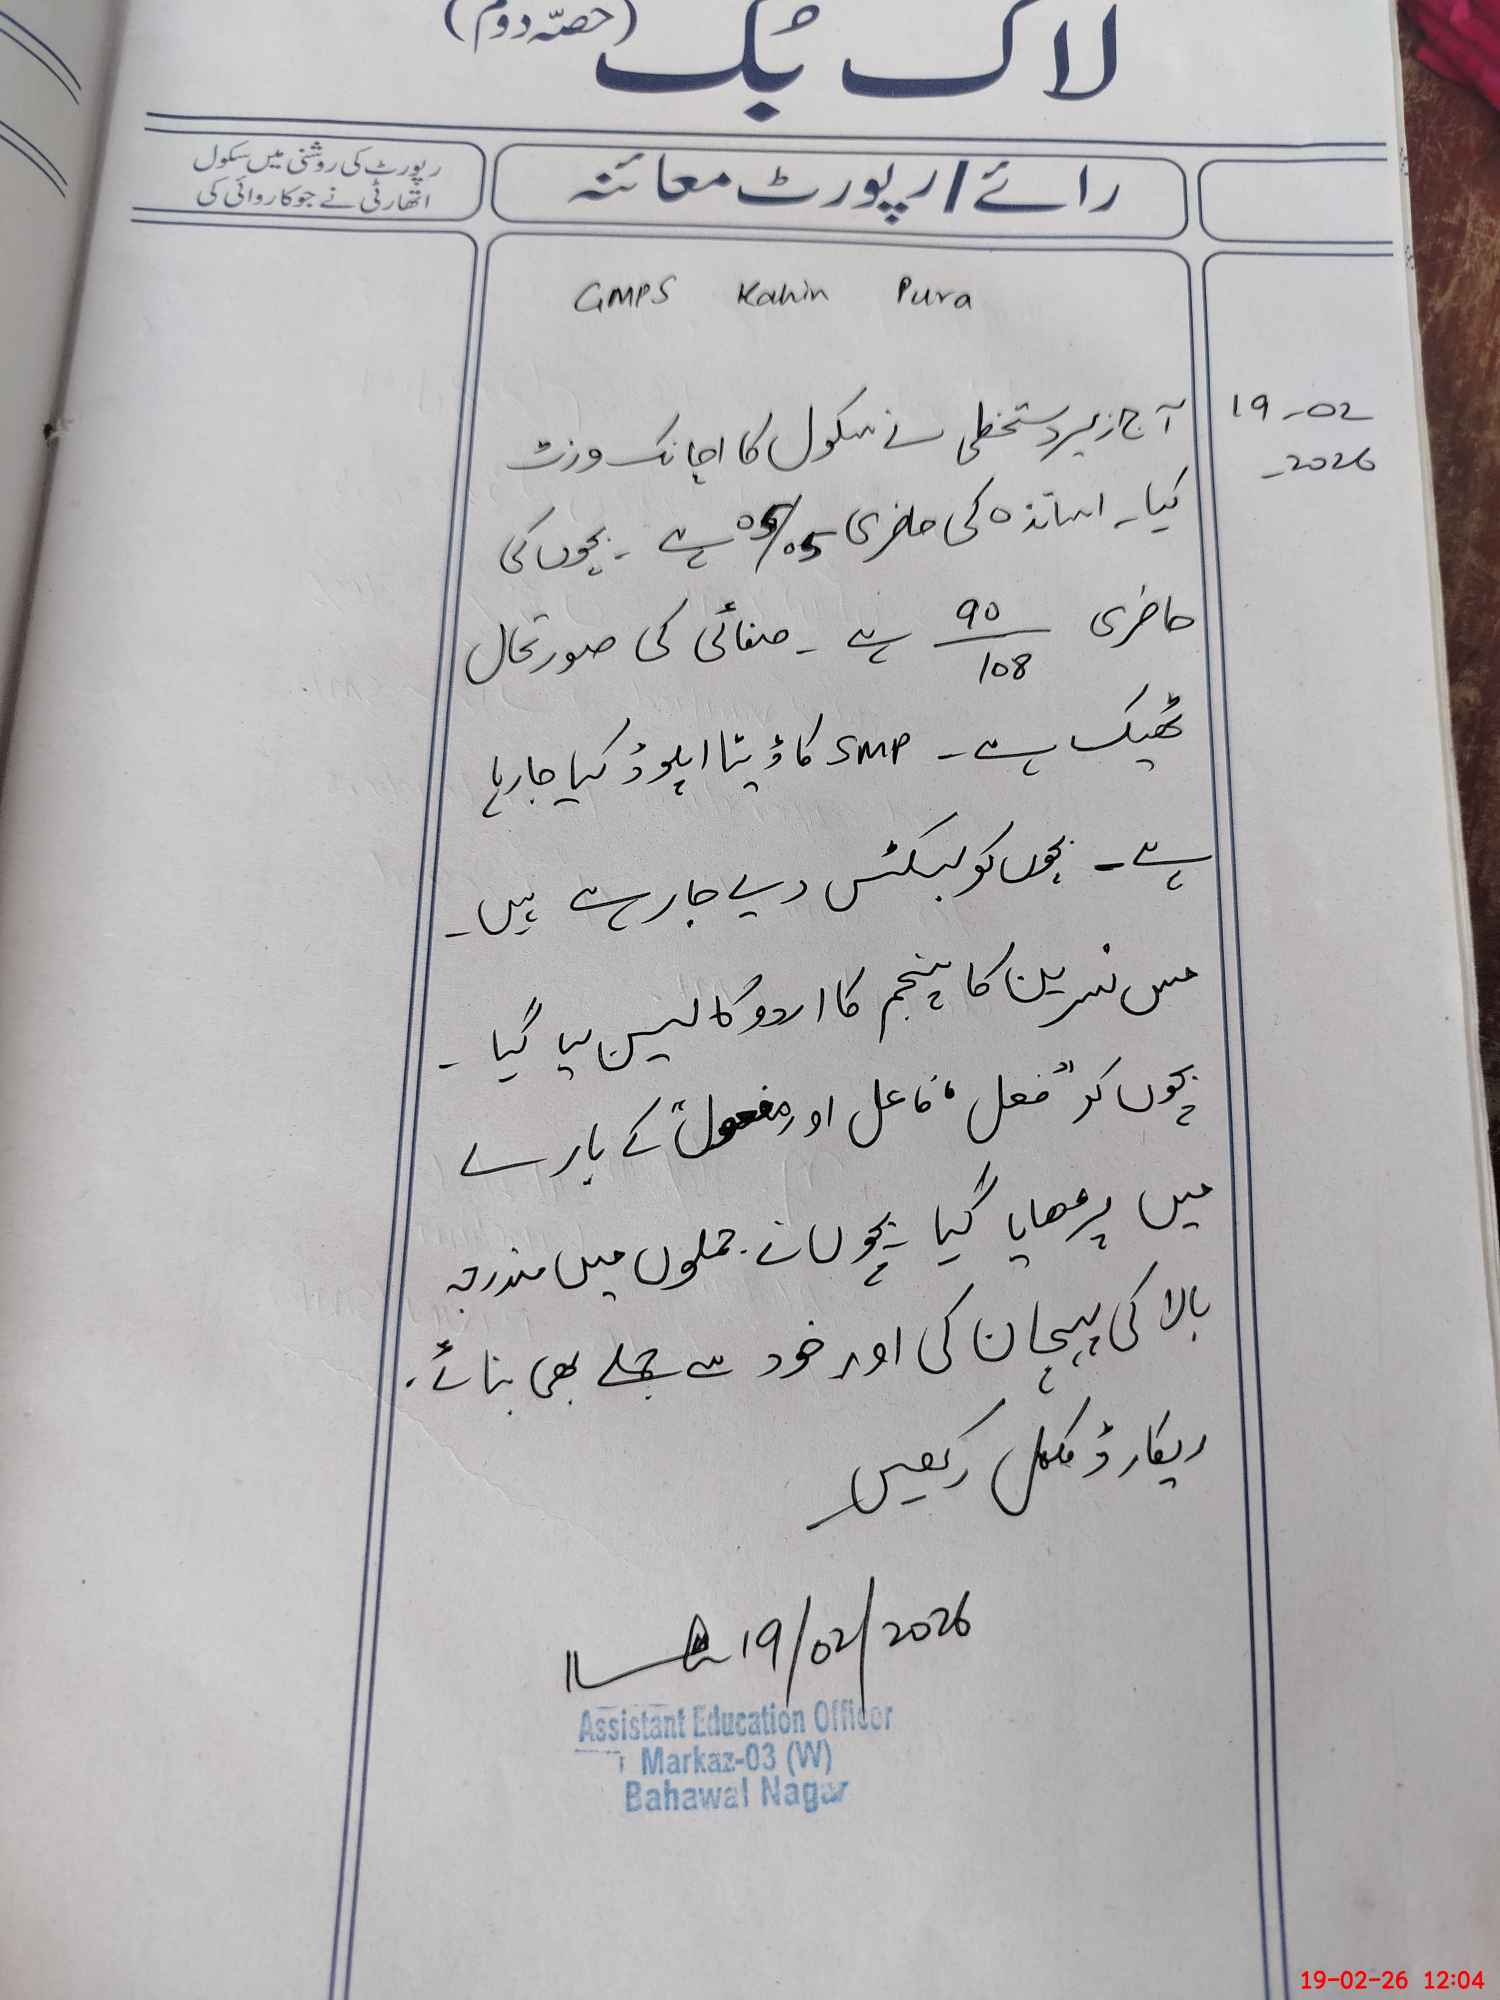 لاگ بُک (حصّہ دوم)
رائے / رپورٹ معائنہ
رپورٹ کی روشنی میں سکول
اتھارٹی نے جو کاروائی کی
GMPS Kahin Pura
19-02
-2026
آج زیر دستخطی نے سکول کا اچانک وزٹ
کیا۔ اساتذہ کی حاضری 05/05 ہے ۔ بچوں کی
حاضری 90/108 ہے ۔ صفائی کی صورتحال
ٹھیک ہے ۔ SMP کا ڈیٹا اپلوڈ کیا جا رہا
ہے ۔ بچوں کو بسکٹس دیے جا رہے ہیں ۔
مس نسرین کا پنجم کا اردو کا لیسن لیا گیا ۔
بچوں کو "فعل ، فاعل اور مفعول" کے بارے
میں پڑھایا گیا ۔ بچوں نے جملوں میں مندرجہ
بالا کی پہچان کی اور خود سے جملے بھی بنائے۔
ریکارڈ مکمل رکھیں
19/02/2026
Assistant Education Officer
Markaz-03 (W)
Bahawal Nagar
19-02-26 12:04